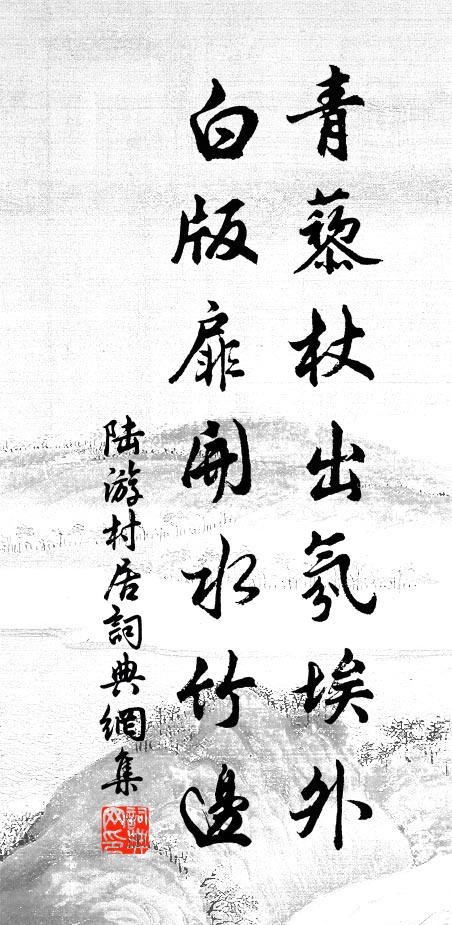 青藜杖出氛埃外
白版扉開水竹邊
陸游村居詞典網集